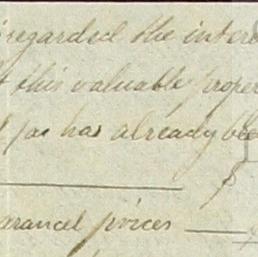 regarded the intere
t this valuable proper
l as has already bee
arancel prices